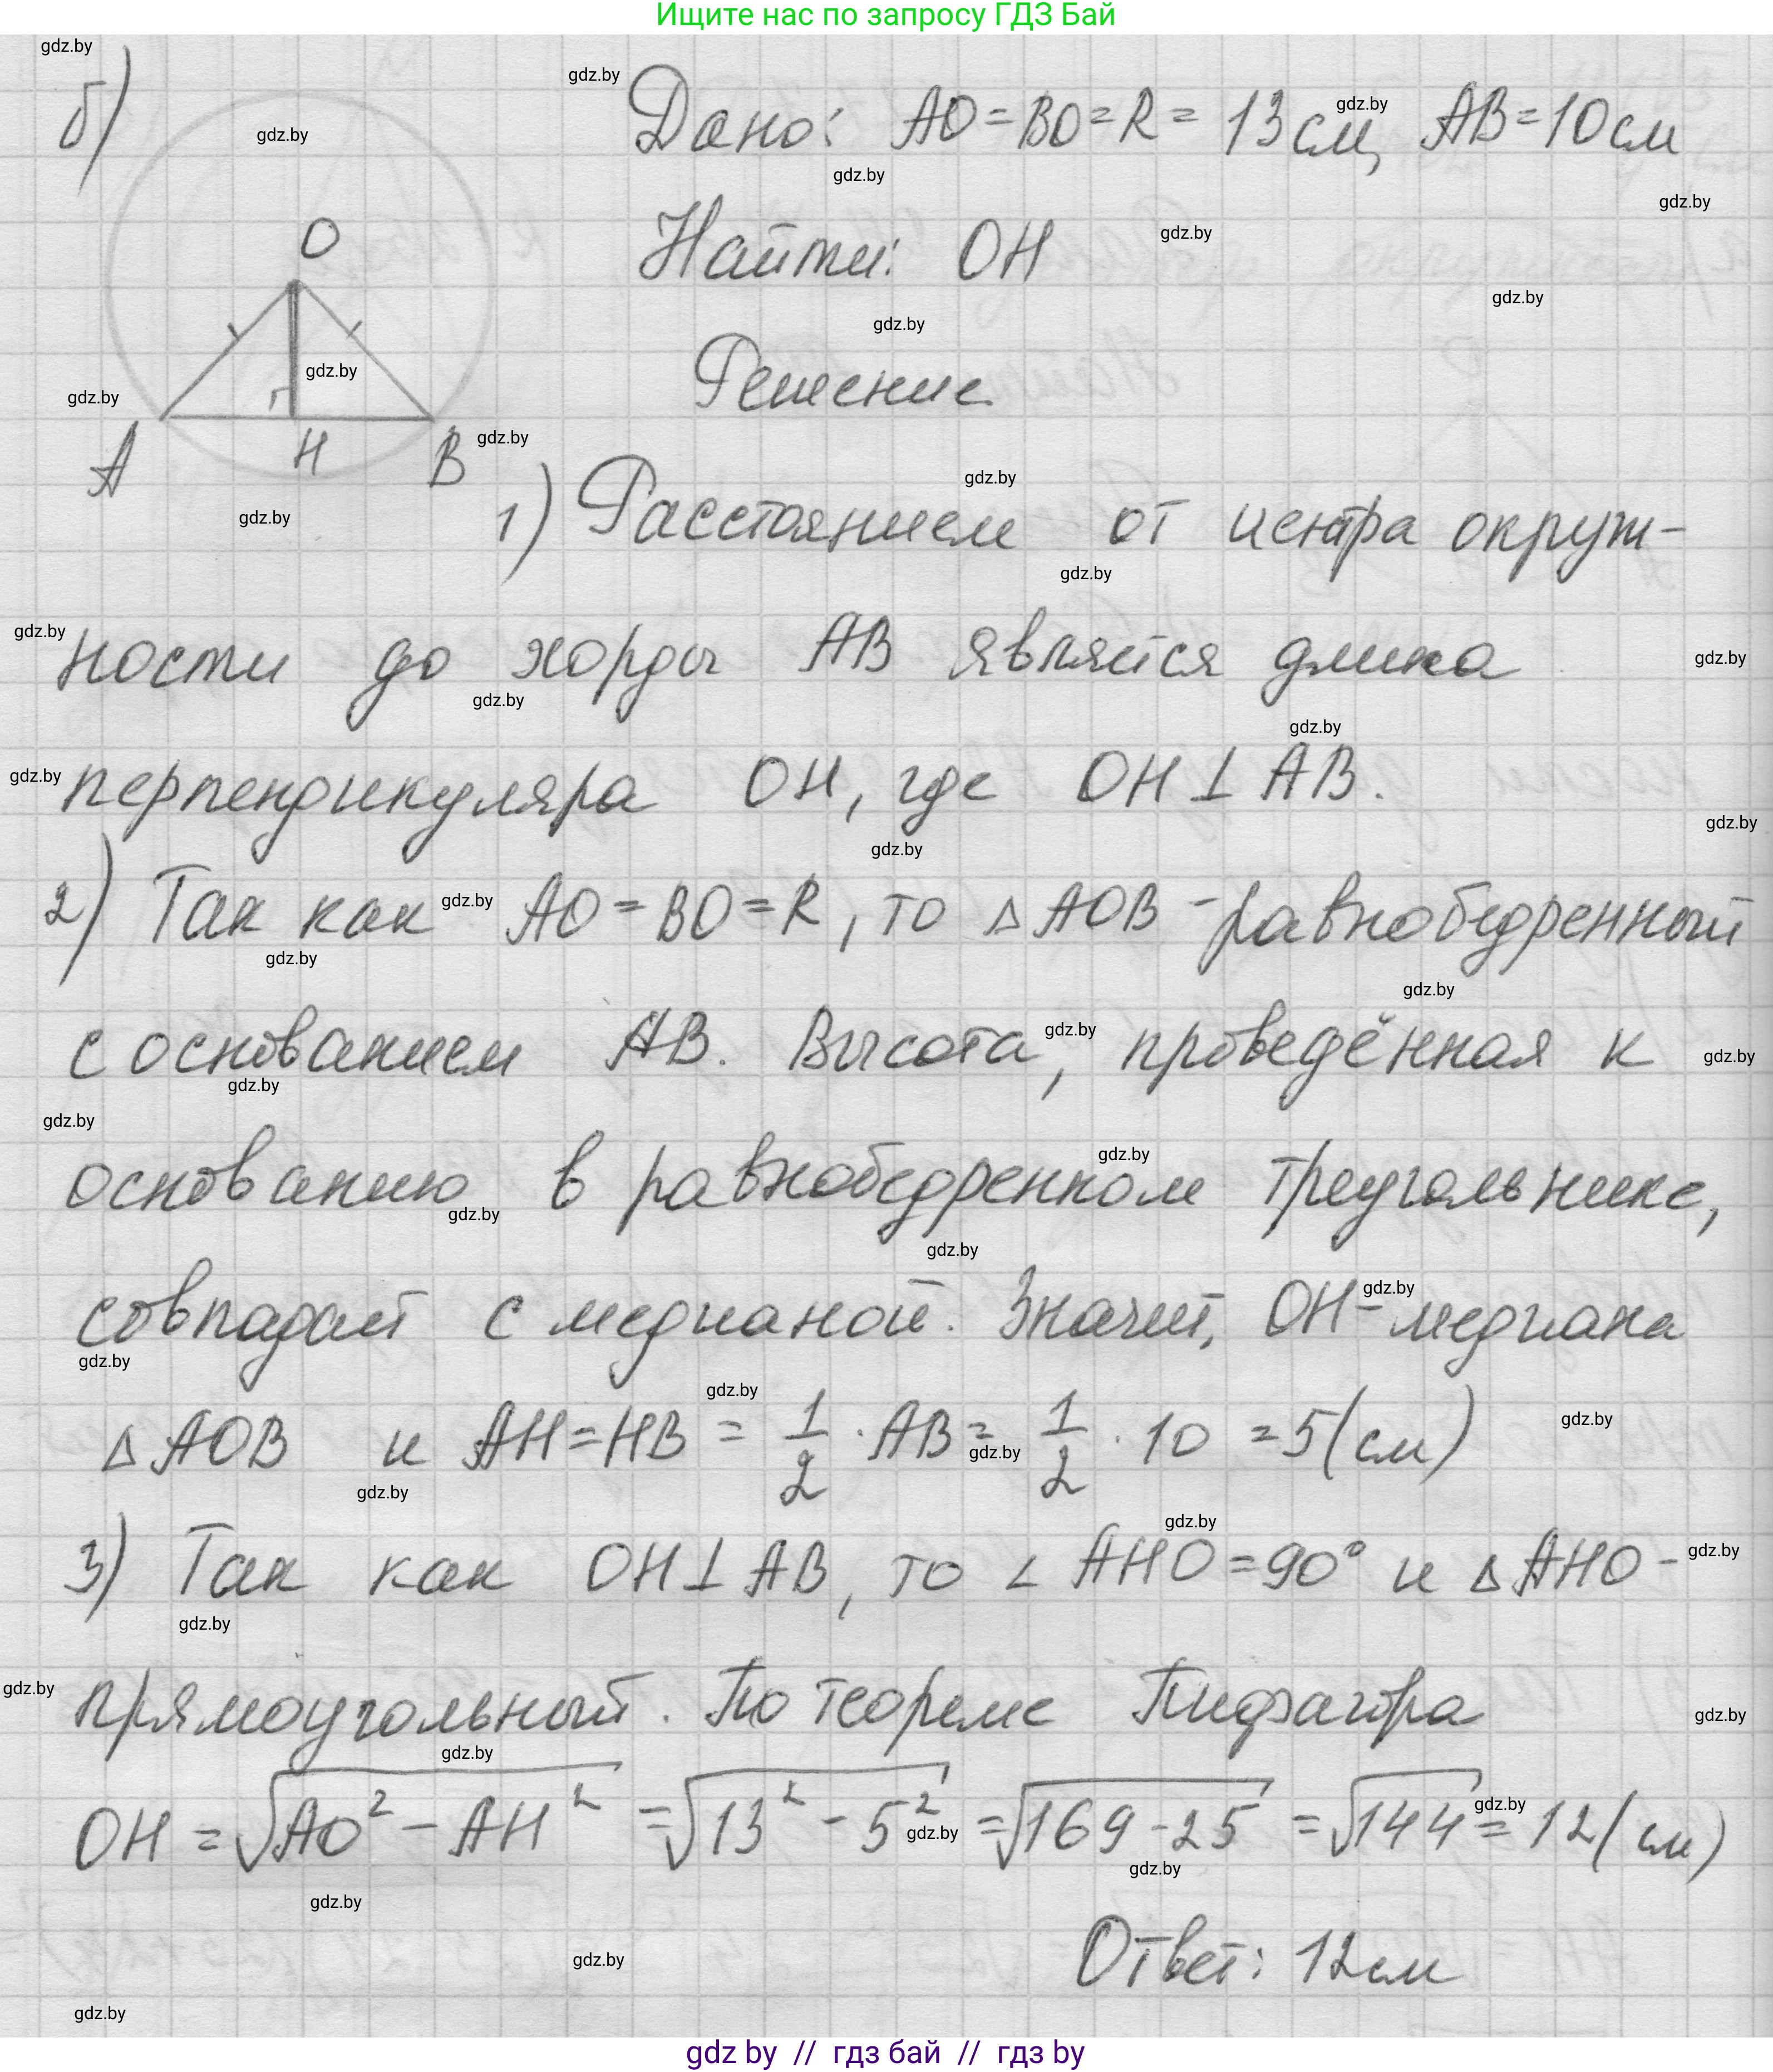 Ищите нас по запросу ГДЗ Бай
б)
Дано: AO = BO = R = 13 см, AB = 10 см
Найти: OH
Решение
O
A
H
B
1) Расстоянием от центра окруж-
ности до хорды AB является длина
перпендикуляра OH, где OH ⊥ AB.
2) Так как AO = BO = R, то △ AOB - равнобедренный
с основанием AB. Высота, проведённая к
основанию в равнобедренном треугольнике,
совпадает с медианой. Значит, OH - медиана
△ AOB и AH = HB = 1/2 · AB = 1/2 · 10 = 5 (см)
3) Так как OH ⊥ AB, то ∠ AHO = 90° и △ AHO -
прямоугольный. По теореме Пифагора
OH = √(AO² - AH²) = √(13² - 5²) = √(169 - 25) = √144 = 12 (см)
Ответ: 12 см
gdz by // гдз бай // гдз by